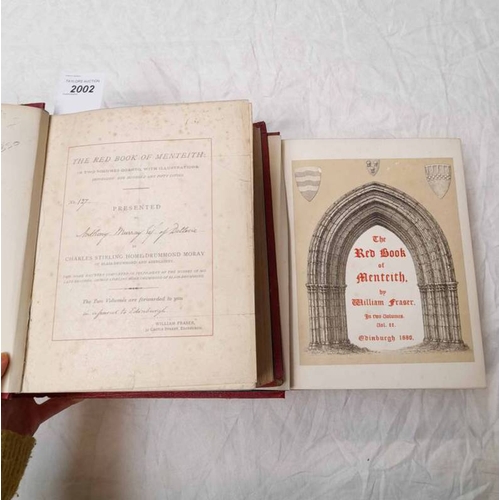 TAYLORS AUCTION
2002
THE RED BOOK OF MENTEITH:
IN TWO VOLUMES QUARTO, WITH ILLUSTRATIONS
No. 127.
PRESENTED
TO
Anthony Murray Esq. of Dollerie
BY
CHARLES STIRLING HOME-DRUMMOND MORAY
The Two Volumes are forwarded to you
WILLIAM FRASER,
The
Red Book
of
Menteith,
by
William Fraser.
In two volumes
Vol. II.
Edinburgh 1880.